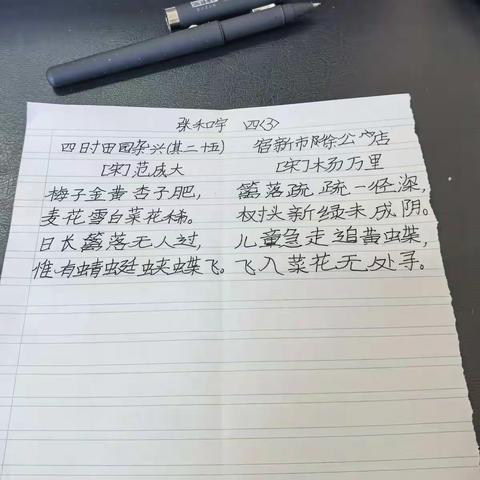 张和宇 四(3)
四时田园杂兴(其二十五)
[宋]范成大
梅子金黄杏子肥，
麦花雪白菜花稀。
日长篱落无人过，
惟有蜻蜓蛱蝶飞。
宿新市徐公店
[宋]杨万里
篱落疏疏一径深，
树头新绿未成阴。
儿童急走追黄蝶，
飞入菜花无处寻。